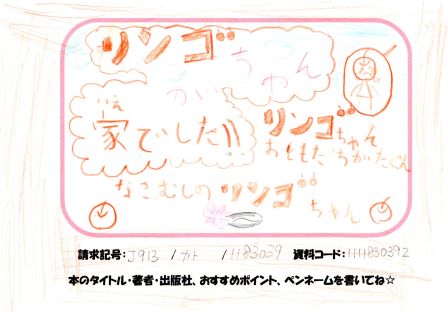 リンゴちゃん
が
家でした!!
いえ
リンゴちゃん
おともだちがたくさん
なきむしのリンゴちゃん
請求記号:J913 /カト /1183039 資料コード:1111830392
本のタイトル・著者・出版社、おすすめポイント、ペンネームを書いてね☆